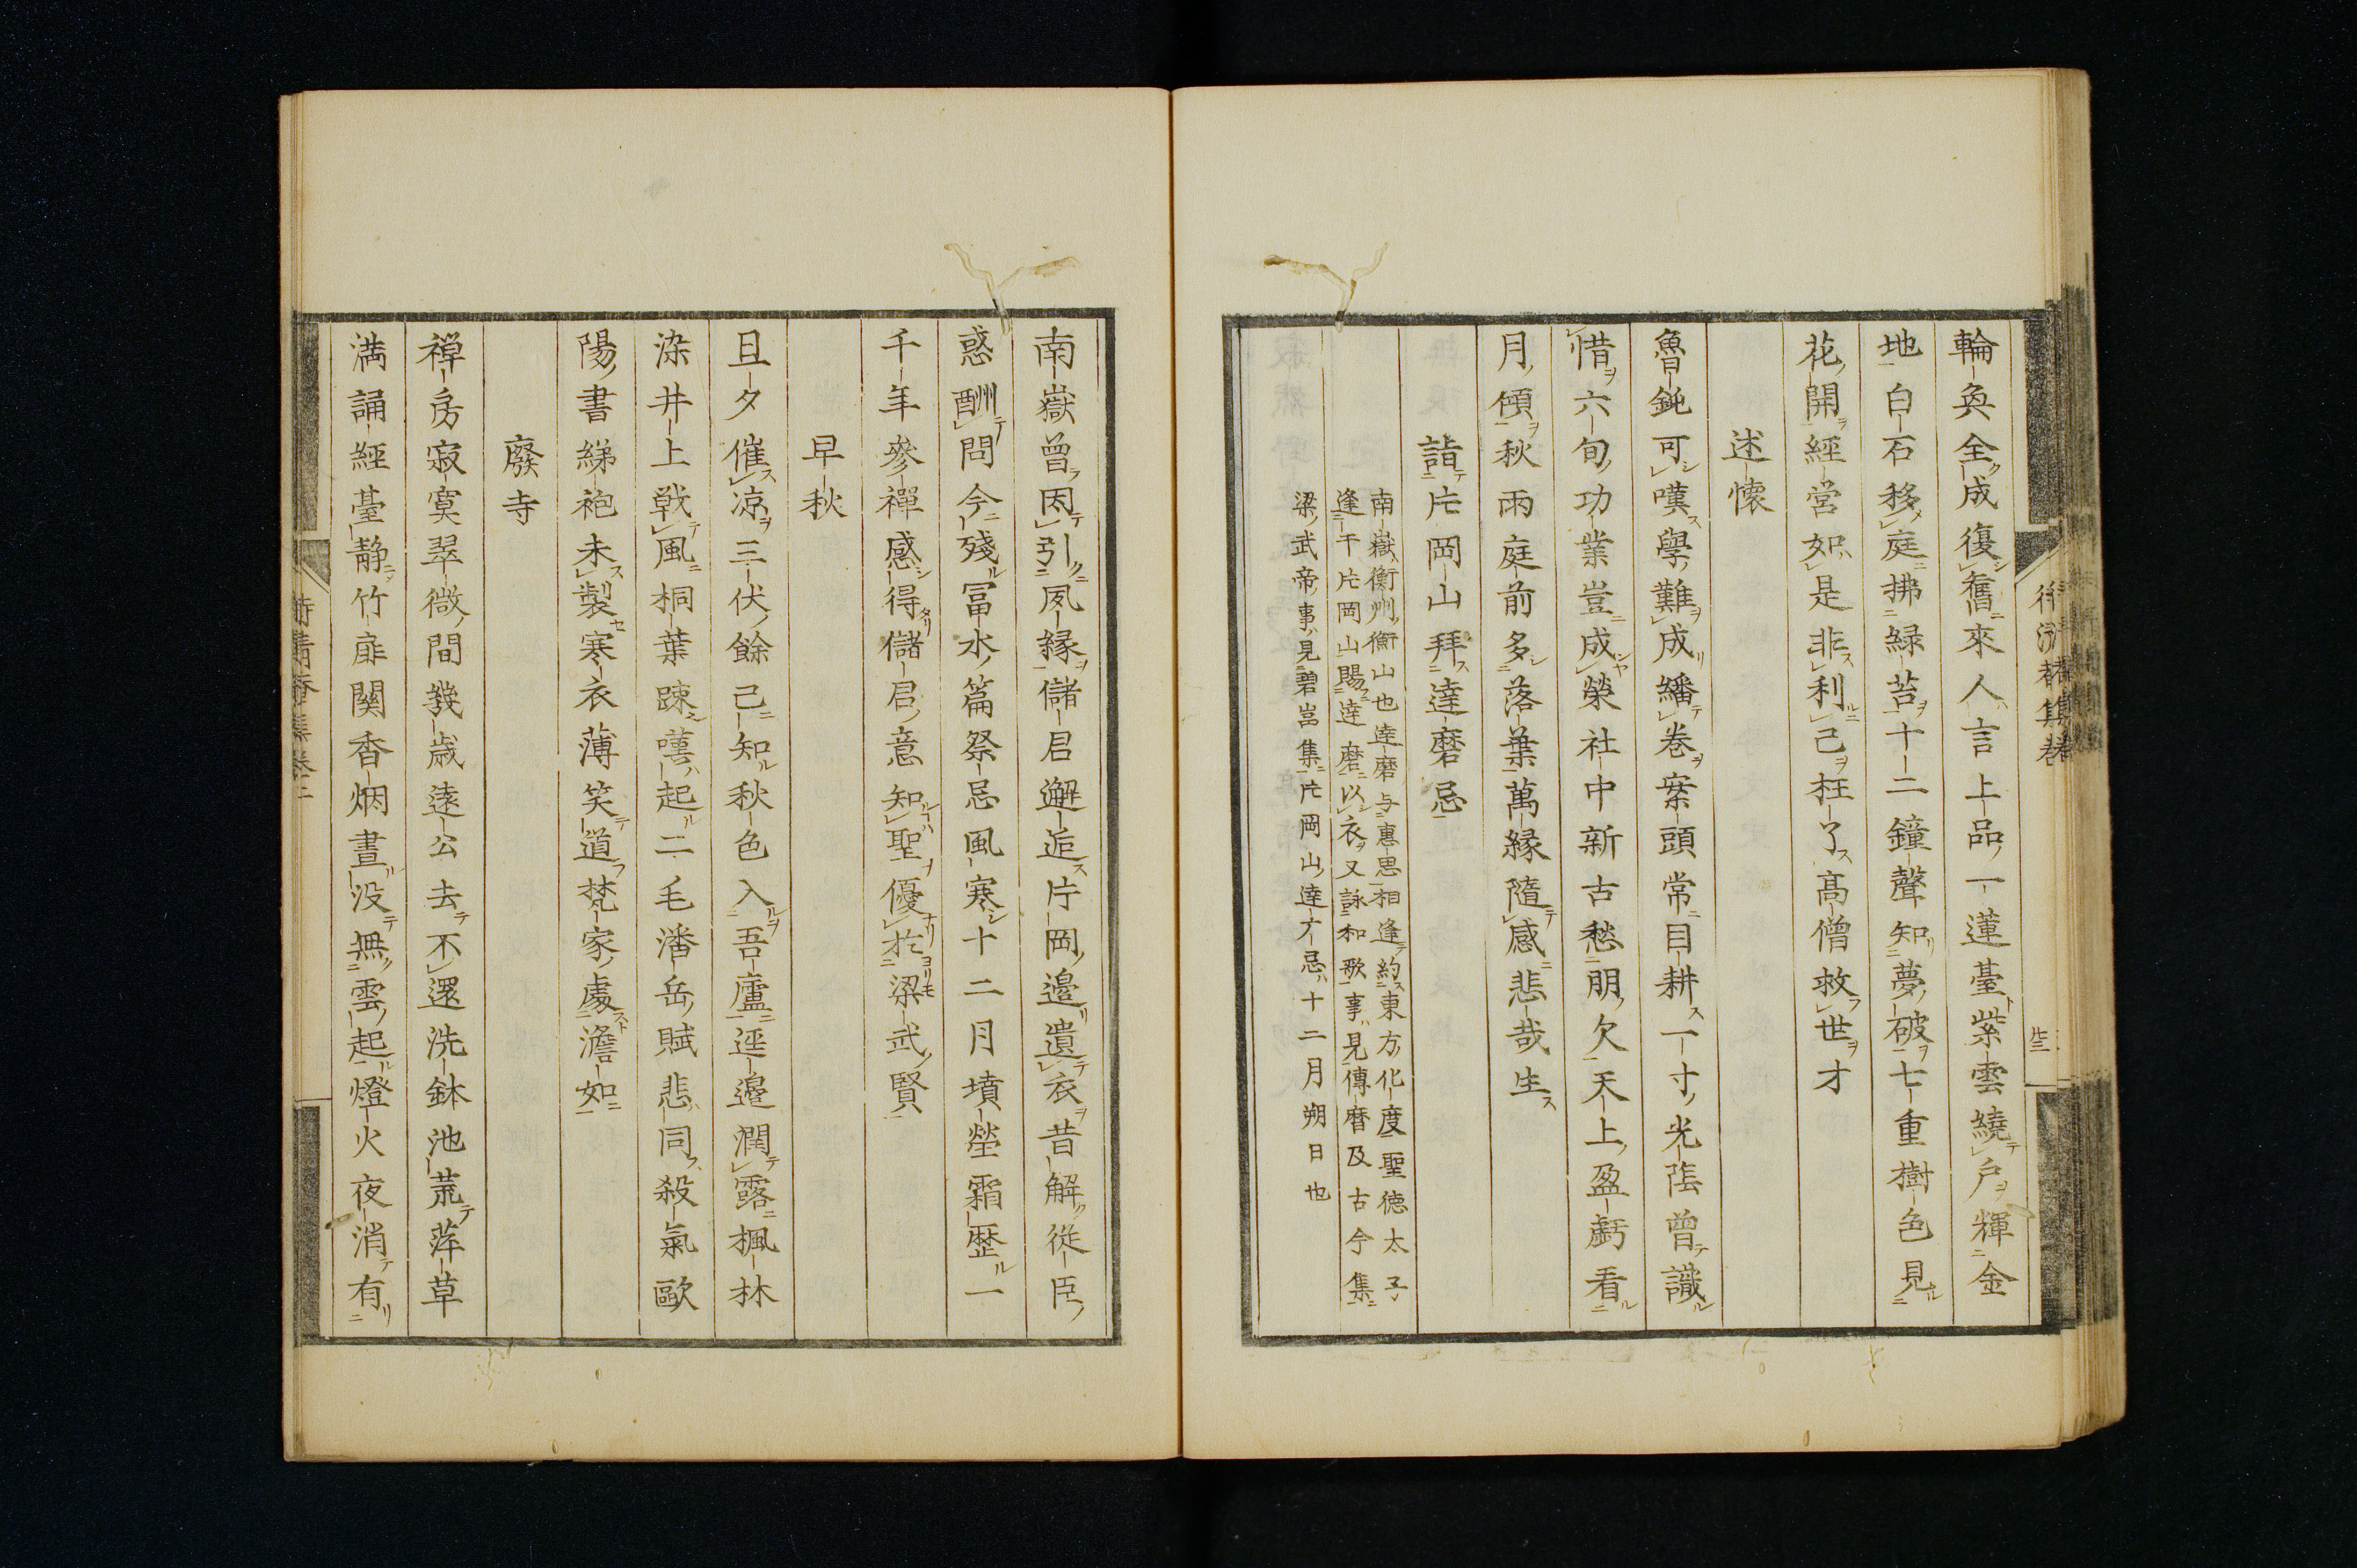 輪奐全成復舊來人言上品一蓮臺紫雲繞戶輝金
地白石移庭拂緑苔十二鐘聲知夢破七重樹色見
花開經營如是非利己枉了高僧救世才
述懷
魯鈍可嘆學難成繙卷案頭常目耕一寸光陰曾識
惜六旬功業豈成榮社中新古愁朋欠天上盈虧看
月傾秋雨庭前多落葉萬縁隨感悲哉生
詣片岡山拜達磨忌
南嶽衡州衡山也達磨与惠思相逢約東方化度聖徳太子
逢于片岡山賜達磨以衣又詠和歌事見傳暦及古今集
梁武帝事見碧岩集片岡山達磨忌十二月朔日也
南嶽曾因引夙縁儲君邂逅片岡邊遺衣昔解從臣
惑酬問今殘冨水篇祭忌風寒十二月墳塋霜歴一
千年參禪感得儲君意知聖優於梁武賢
早秋
旦夕催凉三伏餘已知秋色入吾廬逕邊潤露楓林
染井上戰風桐葉踈嘆起二毛潘岳賦悲同殺氣歐
陽書綈袍未製寒衣薄笑道梵家處澹如
廢寺
禅房寂寞翠微間幾歳遠公去不還洗鉢池荒萍草
満誦經臺静竹扉關香烟晝没無雲起燈火夜消有